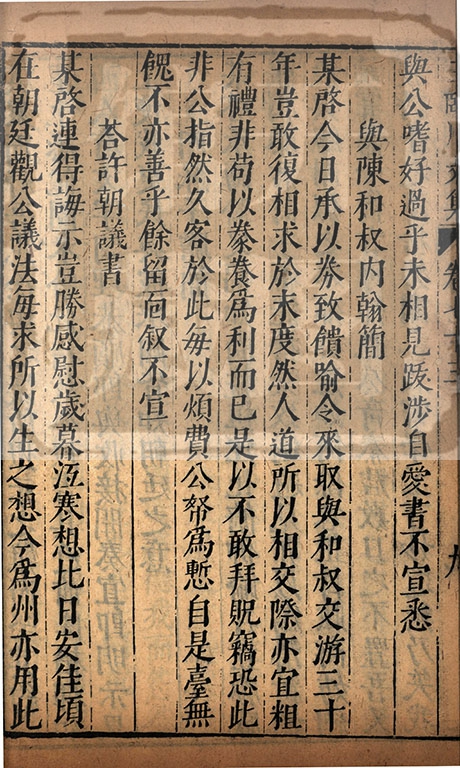 與公嗜好過乎未相見䟦涉自愛書不宣悉
與陳和叔内翰簡
某啓今日承以券致饋喻令來取與和叔交游三十
年豈敢復相求於末度然人道所以相交際亦宜粗
有禮非苟以豢養爲利而已是以不敢拜貺竊恐此
非公指然久客於此毎以煩費公帑爲慙自是臺無
餽不亦善乎餘留面叙不宣
荅許朝議書
某啓連得誨示豈勝感慰歲暮沍寒想比日安佳頃
在朝廷觀公議法毎求所以生之想今爲州亦用此